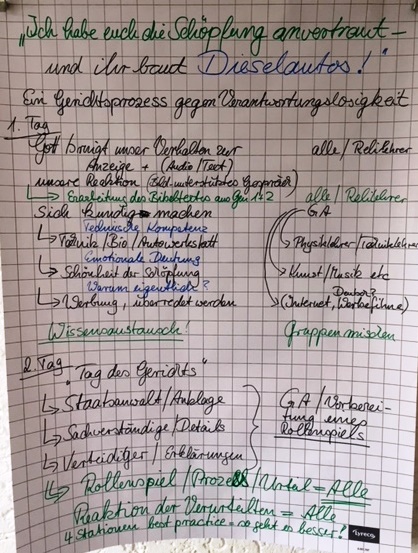 „Ich habe euch die Schöpfung anvertraut –
und ihr baut Dieselautos!"
Ein Gerichtsprozess gegen Verantwortungslosigkeit
1. Tag
Gott bringt unser Verhalten zur alle/Relilehrer
Anzeige + (Audio/Text)
unsere Reaktion (Bild-unterstütztes Gespräch)
↳ Erarbeitung des Bibeltextes aus Gen 1+2 alle/Relilehrer
Sich kundig machen GA
Technische Kompetenz
↳ Technik/Bio/Autowerkstatt Physiklehrer/Techniklehrer
Emotionale Deutung
↳ Schönheit der Schöpfung Kunst/Musik etc
Warum eigentlich?
↳ Werbung, überredet werden (Internet, Werbefilme)
Wissensaustausch! Gruppen mischen
2. Tag
"Tag des Gerichts"
↳ Staatsanwalt/Anklage GA/Vorberei-
↳ Sachverständige/Details tung eines
↳ Verteidiger/Erklärungen Rollenspiels
↳ Rollenspiel/Prozeß/Urteil = Alle
Reaktion der Verurteilten = Alle
4 Stationen best practice = so geht es besser!